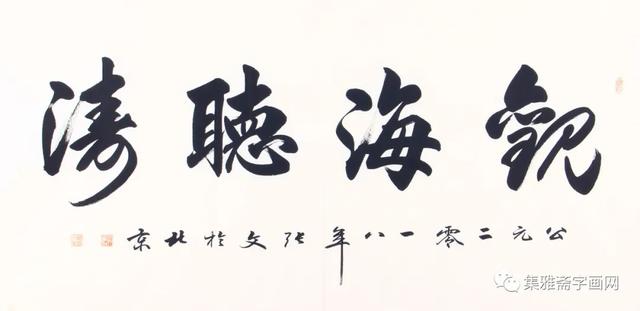 觀海聽濤
公元二零一八年張文於北京
集雅斋字画网